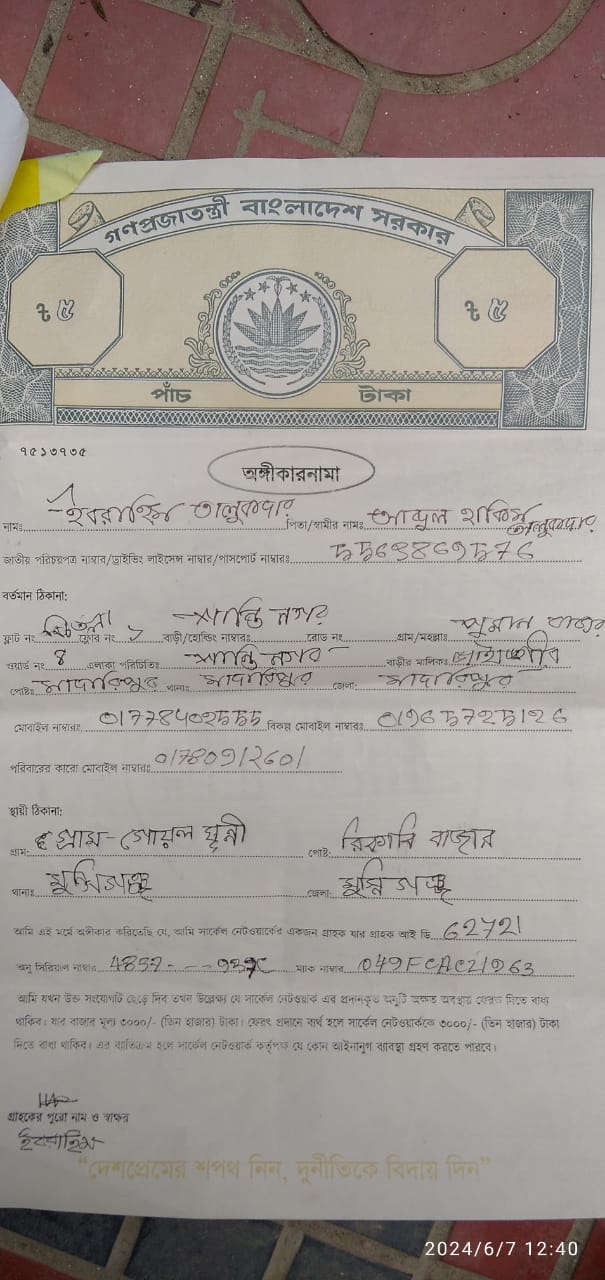 গণপ্রজাতন্ত্রী বাংলাদেশ সরকার
৳ ৫ ৳ ৫
পাঁচ টাকা
৭৫১৩৭৩৫
অঙ্গীকারনামা
নামঃ ইবরাহিম তালুকদার পিতা/স্বামীর নামঃ আব্দুল হাকিম তালুকদার
জাতীয় পরিচয়পত্র নাম্বার/ড্রাইভিং লাইসেন্স নাম্বার/পাসপোর্ট নাম্বারঃ 5563869576
বর্তমান ঠিকানা:
ফ্লাট নং ফ্লোর নং বাড়ী/হোল্ডিং নাম্বারঃ শান্তি নগর রোড নং গ্রাম/মহল্লাঃ পুরান বাজার
ওয়ার্ড নং 8 এলাকা পরিচিতিঃ শান্তি নগর বাড়ীর মালিকঃ
পোষ্টঃ মাদারিপুর থানাঃ মাদারিপুর জেলা: মাদারিপুর
মোবাইল নাম্বারঃ 01778402555 বিকল্প মোবাইল নাম্বারঃ 01965725126
পরিবারের কারো মোবাইল নাম্বারঃ 01780912601
স্থায়ী ঠিকানা:
গ্রাম: গ্রাম- গোয়াল ঘুন্নী পোষ্ট: রিকাবি বাজার
থানাঃ মুন্সিগঞ্জ জেলা: মুন্সিগঞ্জ
আমি এই মর্মে অঙ্গীকার করিতেছি যে, আমি সার্কেল নেটওয়ার্কের একজন গ্রাহক যার গ্রাহক আই ডি 62721
অনু সিরিয়াল নাম্বার 4857- ম্যাক নাম্বার 049FCAC21963
আমি যখন উক্ত সংযোগটি ছেড়ে দিব তখন উল্লেখ্য যে সার্কেল নেটওয়ার্ক এর প্রদানকৃত অনুটি অক্ষত অবস্থায় ফেরত দিতে বাধ্য
থাকিব। যার বাজার মূল্য ৩০০০/- (তিন হাজার) টাকা। ফেরৎ প্রদানে ব্যর্থ হলে সার্কেল নেটওয়ার্ককে ৩০০০/- (তিন হাজার) টাকা
দিতে বাধ্য থাকিব। এর ব্যতিক্রম হলে সার্কেল নেটওয়ার্ক কর্তৃপক্ষ যে কোন আইনানুগ ব্যবস্থা গ্রহণ করতে পারবে।
গ্রাহকের পুরো নাম ও স্বাক্ষর
ইবরাহিম
"দেশপ্রেমের শপথ নিন, দুর্নীতিকে বিদায় দিন"
2024/6/7 12:40